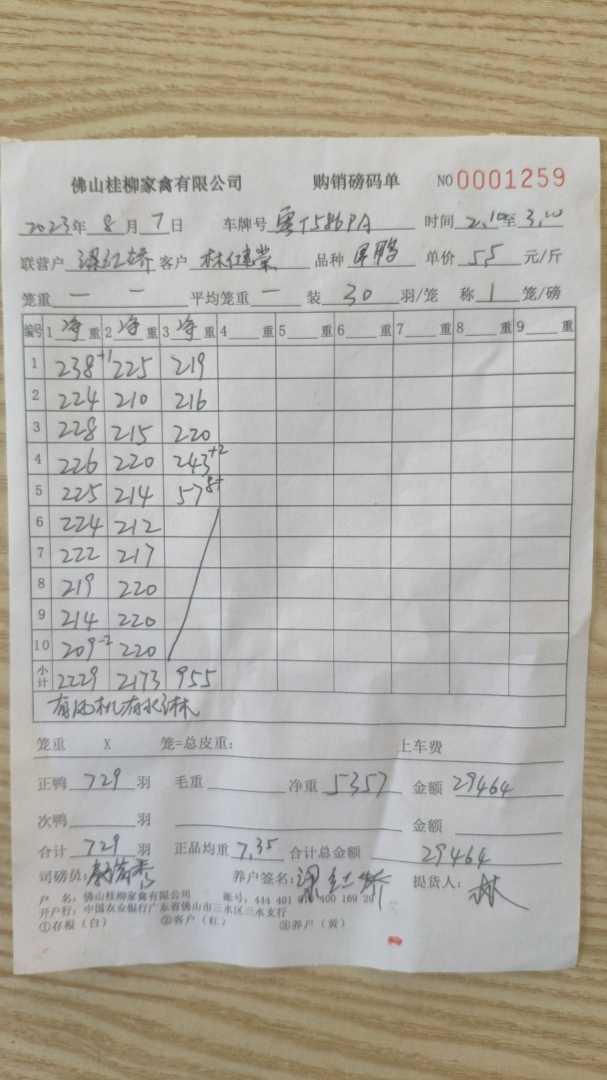 佛山桂柳家禽有限公司 购销磅码单 NO 0001259
2023年 8 月 7 日 车牌号 粤T586PA 时间 2.10至 3.00
联营户 梁红娇 客户 品种 单价 5.5 元/斤
笼重 — — 平均笼重 — 装 30 羽/笼 称 1 笼/磅
编号 1 净 重 2 净 重 3 净 重 4 重 5 重 6 重 7 重 8 重 9 重
1 238+1 225 219
2 224 210 216
3 228 215 220
4 226 220 243+2
5 225 214 57
6 224 212
7 222 217
8 219 220
9 214 220
10 209-2 220
小计 2229 2173 955
有风机有水淋
笼重 X 笼=总皮重: 上车费
正鸭 729 羽 毛重 净重 5357 金额 29464
次鸭 羽 金额
合计 729 羽 正品均重 7.35 合计总金额 29464
司磅员: 养户签名: 梁红娇 提货人: 林
户 名: 佛山桂柳家禽有限公司 账号: 444 401 400 169 29
开户行: 中国农业银行广东省佛山市三水区三水支行
①存根（白） ②客户（红） ③养户（黄）